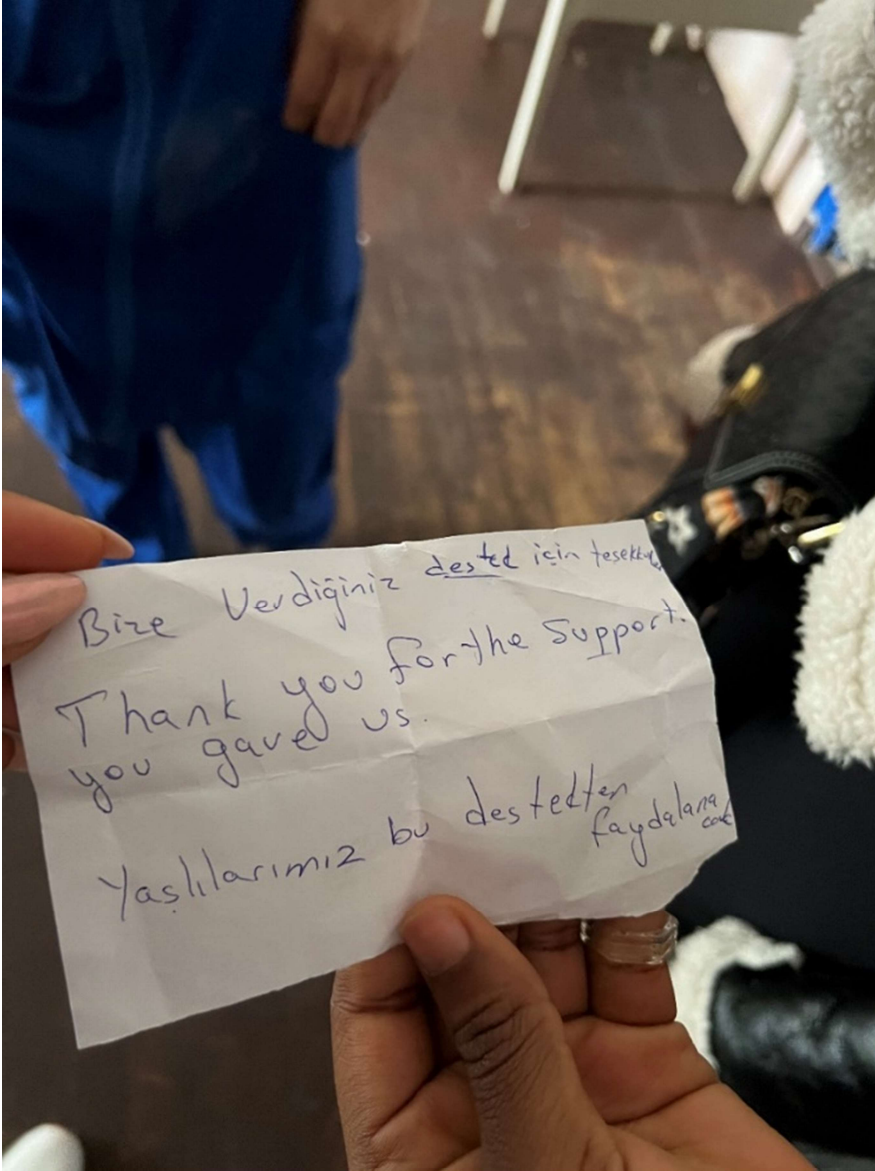 Bize Verdiğiniz dested için tesekkur
Thank you for the support.
you gave us.
Yaşlılarımız bu destedten
faydalana
cak